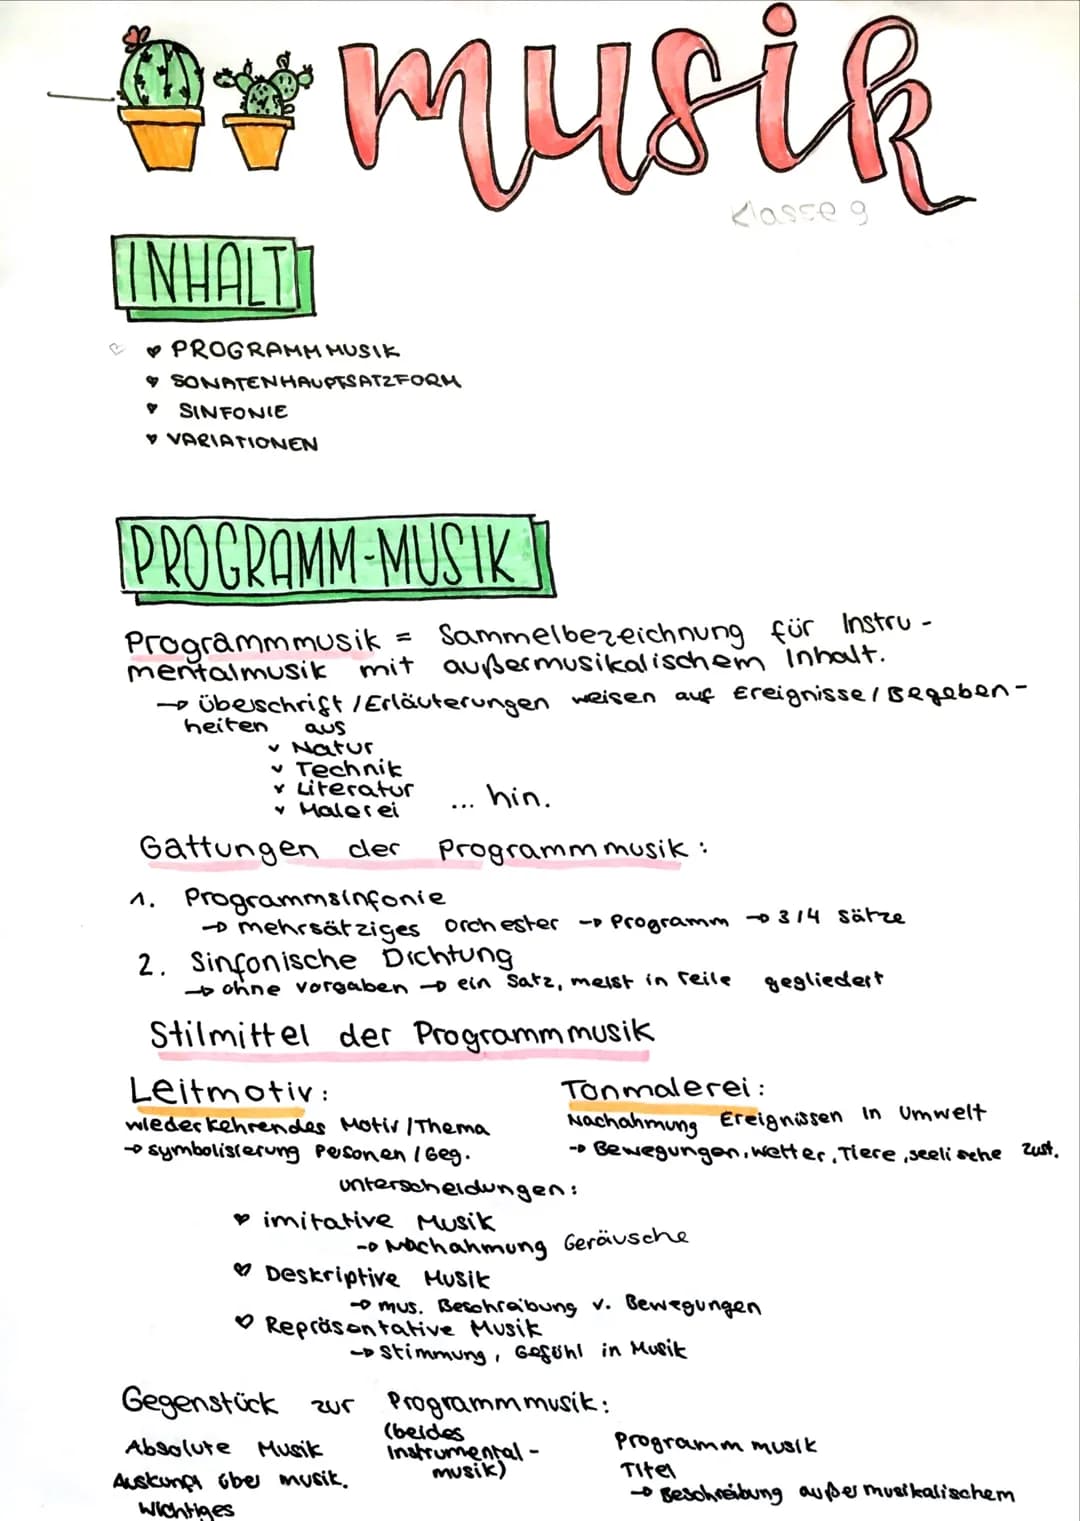 musik
Klasse 9
INHALT
PROGRAMMMUSIK
SONATENHAUPTSATZFORM
SINFONIE
VARIATIONEN
PROGRAMM-MUSIK
Programmmusik = Sammelbezeichnung für Instru-
mentalmusik mit außermusikalischem Inhalt.
→ Überschrift / Erläuterungen weisen auf Ereignisse / Begeben-
heiten aus
Natur
Technik
Literatur
Malerei ... hin.
Gattungen der Programmmusik:
1. Programmsinfonie
→ mehrsätziges Orchester → Programm → 3/4 Sätze
2. Sinfonische Dichtung
→ ohne Vorgaben → ein Satz, meist in Teile gegliedert
Stilmittel der Programmmusik
Leitmotiv:
wiederkehrendes Motiv / Thema
→ Symbolisierung Personen / Geg.
Tonmalerei:
Nachahmung Ereignissen in Umwelt
→ Bewegungen, Wetter, Tiere, seelische Zust.
Unterscheidungen:
imitative Musik
→ Nachahmung Geräusche
Deskriptive Musik
→ mus. Beschreibung v. Bewegungen
Repräsentative Musik
→ Stimmung, Gefühl in Musik
Gegenstück zur Programmmusik:
(beides
Instrumental-
musik)
Absolute Musik
Auskunft über musik.
Wichtiges
Programmmusik
Titel
→ Beschreibung außermusikalischem